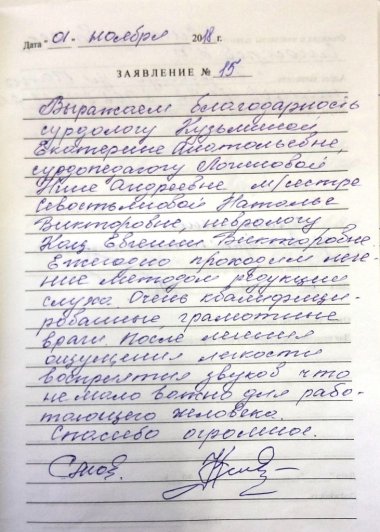 Дата „01" ноября 2018 г.
ЗАЯВЛЕНИЕ № 15
Выражаем благодарность
сурдологу Кузьминой
Екатерине Анатольевне,
сурдопедагогу Логиновой
Нине Андреевне м/сестре
Севостьяновой Наталье
Викторовне, неврологу
Кац Евгении Викторовне
Ежегодно проходим лече-
ние методом редукции
слуха. Очень квалифици-
рованные грамотные
врачи. После лечения
ощущения легкости
восприятия звуков что
не мало важно для рабо-
тающего человека.
Спасибо огромное.